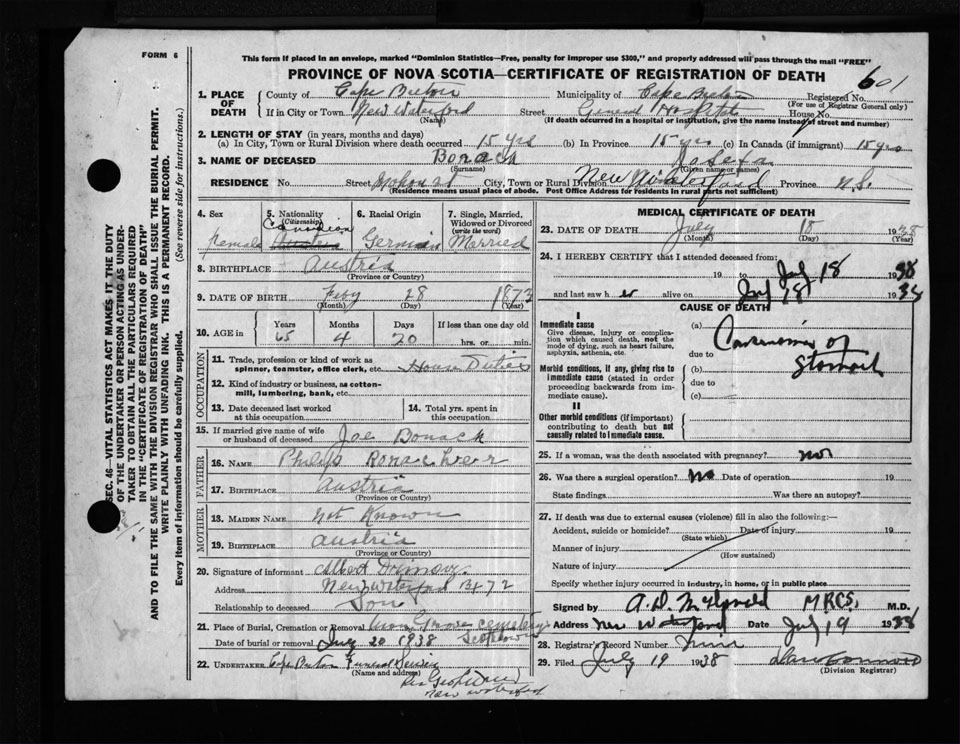 FORM 6
This form if placed in an envelope, marked "Dominion Statistics—Free, penalty for improper use $300," and properly addressed will pass through the mail "FREE"
PROVINCE OF NOVA SCOTIA—CERTIFICATE OF REGISTRATION OF DEATH
601
1. PLACE OF DEATH
County of Cape Breton Municipality of Cape Breton Registered No.
(For use of Registrar General only)
If in City or Town New Waterford Street General Hospital House No.
(Name) (If death occurred in a hospital or institution, give the name instead of street and number)
2. LENGTH OF STAY (in years, months and days)
(a) In City, Town or Rural Division where death occurred 15 yrs (b) In Province 15 yrs (c) In Canada (if immigrant) 15 yrs
3. NAME OF DECEASED Bonack Josefa
(Surname) (Given name or names)
RESIDENCE No. Street City, Town or Rural Division New Waterford Province N.S.
(Residence means usual place of abode. Post Office Address for residents in rural parts not sufficient)
4. Sex Female
5. Nationality (Citizenship) Canadian
6. Racial Origin German
7. Single, Married, Widowed or Divorced (write the word) Married
8. BIRTHPLACE Austria
(Province or Country)
9. DATE OF BIRTH Feby 28 1873
(Month) (Day) (Year)
10. AGE in Years 65 Months 4 Days 20 If less than one day old hrs. or min.
OCCUPATION
11. Trade, profession or kind of work as spinner, teamster, office clerk, etc. House Duties
12. Kind of industry or business, as cotton-mill, lumbering, bank, etc.
13. Date deceased last worked at this occupation
14. Total yrs. spent in this occupation
15. If married give name of wife or husband of deceased Joe Bonack
FATHER
16. NAME Philip
17. BIRTHPLACE Austria
(Province or Country)
MOTHER
18. MAIDEN NAME Not Known
19. BIRTHPLACE Austria
(Province or Country)
20. Signature of informant Albert
Address New Waterford B472
Relationship to deceased Son
21. Place of Burial, Cremation or Removal Grove Cemetery Scotchtown
Date of burial or removal July 20 1938
22. UNDERTAKER Cape Breton Funeral Service
(Name and address)
New Waterford
MEDICAL CERTIFICATE OF DEATH
23. DATE OF DEATH July 18 1938
(Month) (Day) (Year)
24. I HEREBY CERTIFY that I attended deceased from:
19 to July 18 1938
and last saw her alive on July 18 1938
CAUSE OF DEATH
I
Immediate cause
Give disease, injury or complication which caused death, not the mode of dying, such as heart failure, asphyxia, asthenia, etc.
(a) Carcinoma of Stomach
due to
Morbid conditions, if any, giving rise to immediate cause (stated in order proceeding backwards from immediate cause).
(b)
due to
(c)
II
Other morbid conditions (if important) contributing to death but not causally related to immediate cause.
25. If a woman, was the death associated with pregnancy? no
26. Was there a surgical operation? No Date of operation 19
State findings Was there an autopsy?
27. If death was due to external causes (violence) fill in also the following:—
Accident, suicide or homicide? Date of injury 19
(State which)
Manner of injury
(How sustained)
Nature of injury
Specify whether injury occurred in industry, in home, or in public place
Signed by MRCS. M.D.
Address New Waterford Date July 19 1938
28. Registrar's Record Number
29. Filed July 19 1938
(Division Registrar)
SEC. 46—VITAL STATISTICS ACT MAKES IT THE DUTY
OF THE UNDERTAKER OR PERSON ACTING AS UNDER-
TAKER TO OBTAIN ALL THE PARTICULARS REQUIRED
IN THE "CERTIFICATE OF REGISTRATION OF DEATH"
AND TO FILE THE SAME WITH THE DIVISION REGISTRAR WHO SHALL ISSUE THE BURIAL PERMIT.
WRITE PLAINLY WITH UNFADING INK. THIS IS A PERMANENT RECORD.
Every item of information should be carefully supplied. (See reverse side for instructions.)